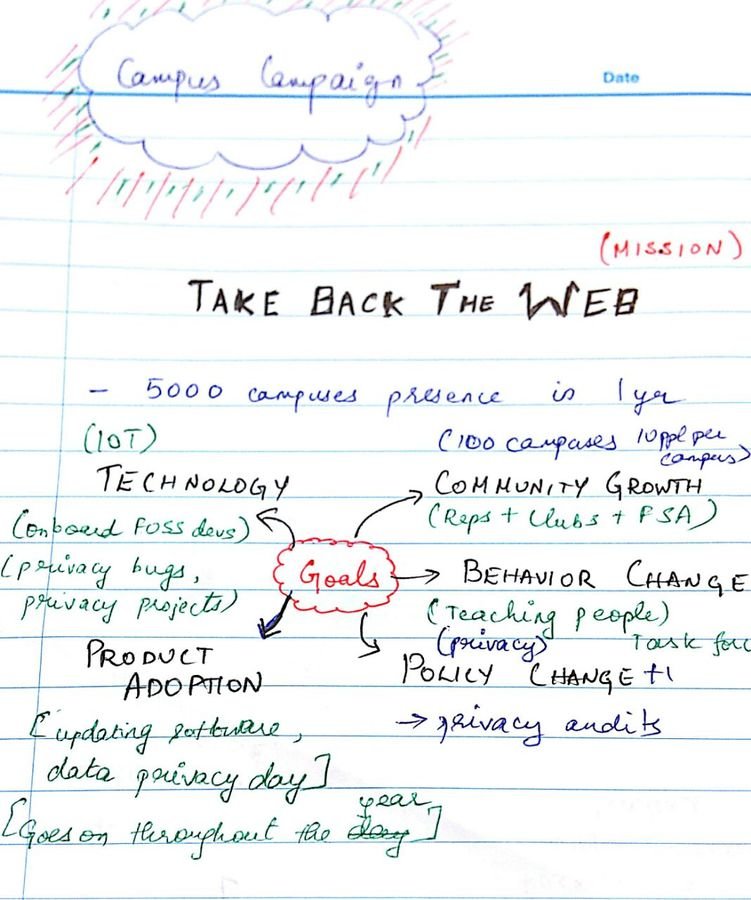 Campus Campaign
Date
(MISSION)
TAKE BACK THE WEB
- 5000 campuses presence in 1 yr
(IOT)
(100 campuses 10 ppl per
campus)
TECHNOLOGY
COMMUNITY GROWTH
(Onboard FOSS devs)
(Reps + Clubs + FSA)
(privacy bugs,
privacy projects)
Goals
BEHAVIOR CHANGE
(Teaching people)
(privacy)
Task forc
PRODUCT
ADOPTION
POLICY CHANGE +1
→ privacy audits
[updating software,
data privacy day]
year
[Goes on throughout the day]